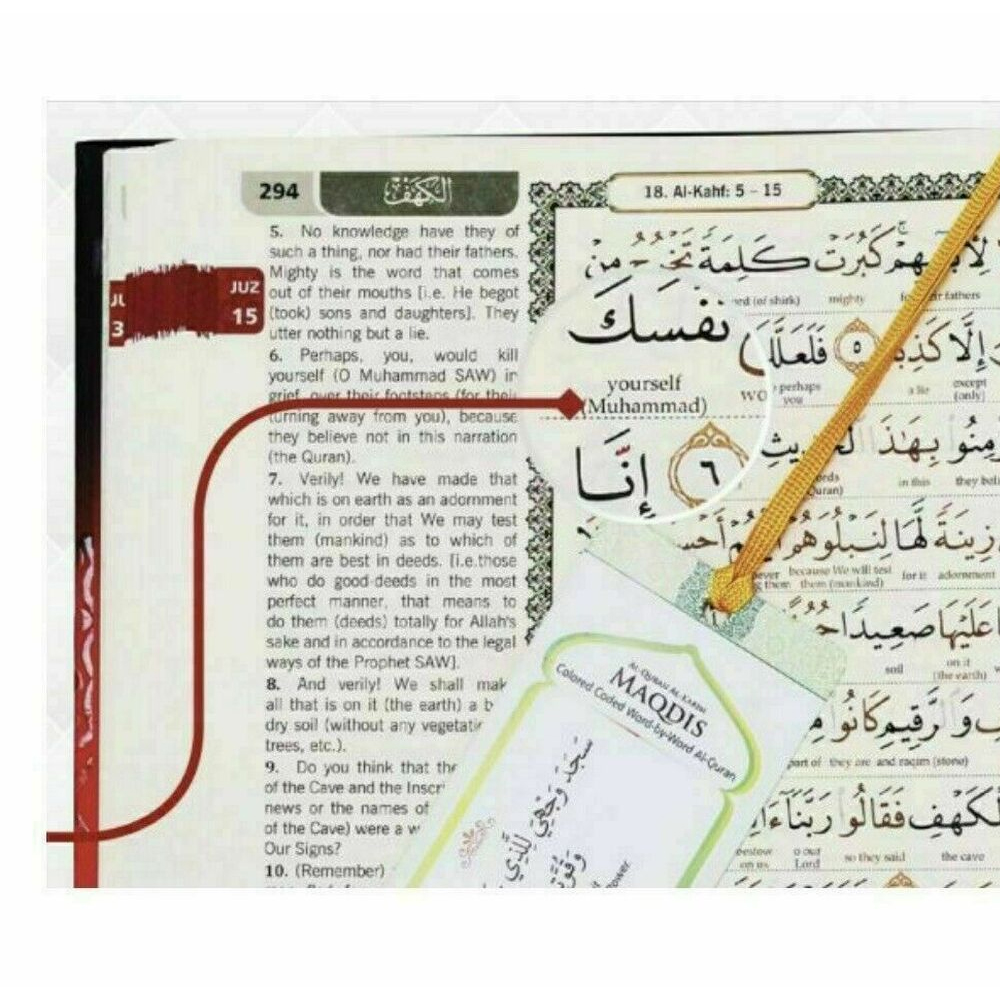 294
الكهف
JUZ
15
3
5. No knowledge have they of
such a thing, nor had their fathers.
Mighty is the word that comes
out of their mouths [i.e. He begot
(took) sons and daughters]. They
utter nothing but a lie.
6. Perhaps, you, would kill
yourself (O Muhammad SAW) in
grief, over their footsteps (for their
turning away from you), because
they believe not in this narration
(the Quran).
7. Verily! We have made that
which is on earth as an adornment
for it, in order that We may test
them (mankind) as to which of
them are best in deeds. [i.e.those
who do good deeds in the most
perfect manner, that means to
do them (deeds) totally for Allah's
sake and in accordance to the legal
ways of the Prophet SAW].
8. And verily! We shall mak
all that is on it (the earth) a b
dry soil (without any vegetatio
trees, etc.).
9. Do you think that the
of the Cave and the Inscri
news or the names of
of the Cave) were a w
Our Signs?
10. (Remember)
18. Al-Kahf: 5 - 15
كَبُرَتْ كَلِمَةً تَخْرُجُ مِنْ
word (of shirk) mighty for their fathers
نَفْسَكَ
yourself
(Muhammad)
إِلَّا كَذِبًا ٥ فَلَعَلَّكَ
perhaps
you
a lie
except
(only)
إِنَّا
٦
بِهَٰذَا الْحَدِيثِ
in this
زِينَةً لَّهَا لِنَبْلُوَهُمْ
because We will test
them (mankind)
for it adornment
عَلَيْهَا صَعِيدًا
soil
on it
(the earth)
وَالرَّقِيمِ كَانُوا
part of they are and raqim (stone)
فَقَالُوا رَبَّنَا
bestow
on us
O our
Lord
so they said the cave
AL-QURAN AL-KARIM
MAQDIS
Colored Coded Word-by-Word Al-Quran
سَجَدَ وَجْهِيَ لِلَّذِي